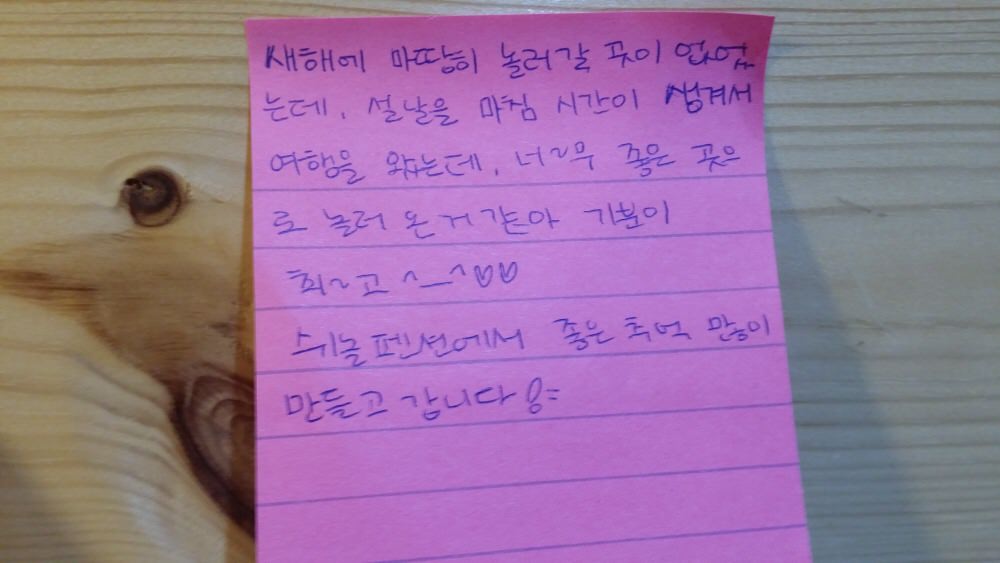 새해에 마땅히 놀러갈 곳이 없었
는데, 설날을 마침 시간이 생겨서
여행을 왔는데, 너~무 좋은 곳으
로 놀러 온거 같아 기분이
최~고 ^_^♡♡
쉬놀펜션에서 좋은 추억 많이
만들고 갑니다